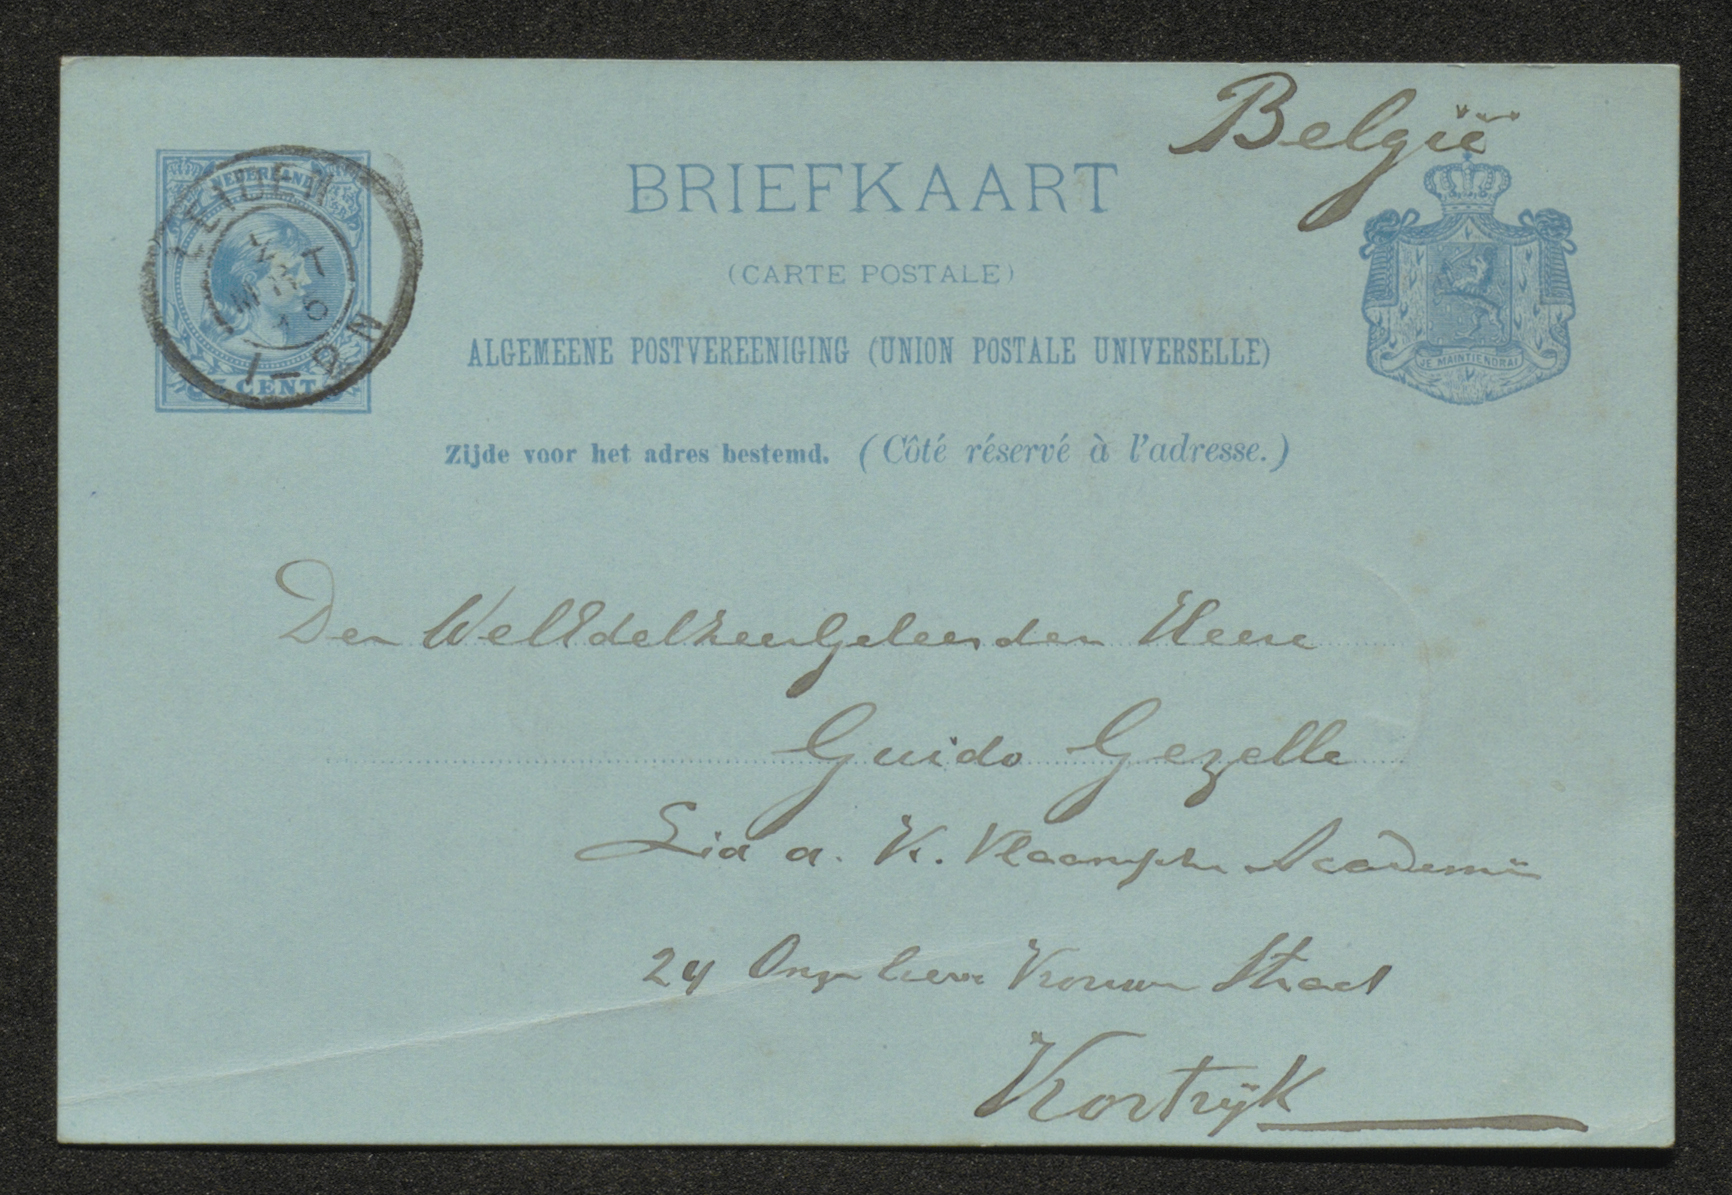 België
BRIEFKAART
(CARTE POSTALE)
ALGEMEENE POSTVEREENIGING (UNION POSTALE UNIVERSELLE)
Zijde voor het adres bestemd. (Côté réservé à l'adresse.)
NEDERLAND
CENT
LEIDEN
JE MAINTIENDRAI
Den WelEdelZeerGeleerden Heere
Guido Gezelle
Lid a. K. Vlaamsche Academie
24 Onze lieve Vrouwe Straat
Kortrijk